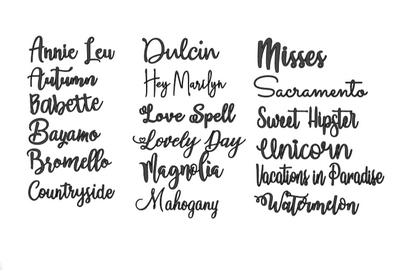 Annie Leu
Autumn
Babette
Bayamo
Bromello
Countryside
Dulcin
Hey Marilyn
Love Spell
Lovely Day
Magnolia
Mahogany
Misses
Sacramento
Sweet Hipster
Unicorn
Vacations in Paradise
Watermelon